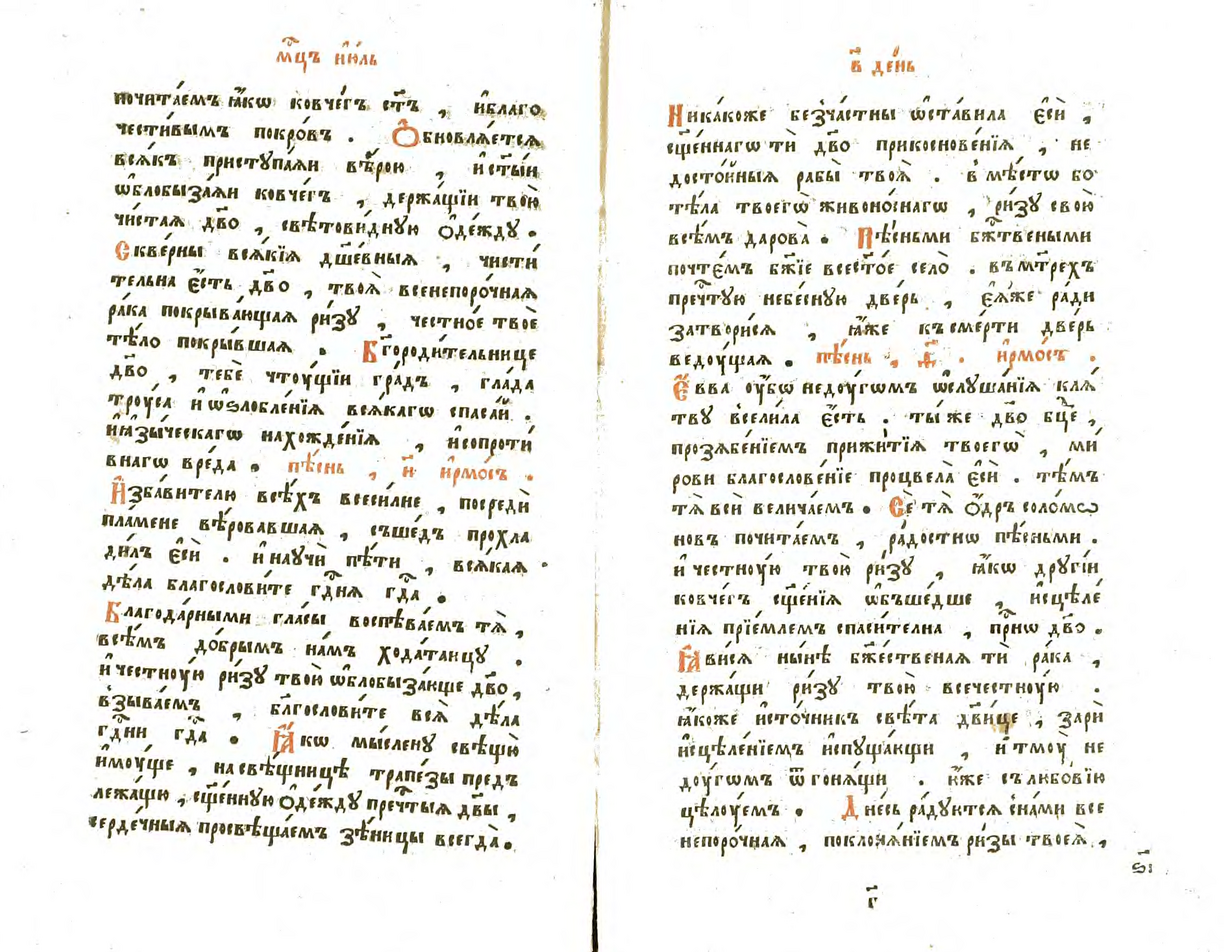 мц҃ъ ию́ль
почита́емъ ꙗ҆́кѡ ковче́гъ ст҃ъ , и҆благо
чести́вымъ покро́въ . Ѻ҆бновлѧ́етсѧ
всѧ́къ приступа́ѧи вѣ́рою , и҆ ст҃ы́и
ѡ҆блобыза́ѧи ковче́гъ , держа́щїи твою̀
чи́стаѧ дв҃о , свѣтови́дную ѻ҆де́жду .
Скве́рны всѧ́кїѧ дш҃е́вныѧ , чисти
тельна є҆́сть дв҃о , твоѧ̀ всенепоро́чнаѧ
ра́ка покрыва́ющаѧ ри́зу , честно́е твоѐ
тѣ́ло покры́вшаѧ . Бг҃ороди́тельнице
дв҃о , тебѐ чтоу́щїи гра́дъ , гла́да
троу́са и҆ ѡ҆ѕлобле́нїѧ всѧ́кагѡ спаса́й .
и҆ ꙗ҆зы́ческагѡ нахожде́нїѧ , и҆ сопроти́
внагѡ вре́да . пѣ́снь , и҃ . і҆рмо́съ .
И҆зба́вителю всѣ́хъ всеси́лне , посредѝ
пла́мене вѣ́ровавшаѧ , съше́дъ прохла
ди́лъ є҆сѝ . и҆ научѝ пѣ́ти , всѧ́каѧ
дѣ́ла благослови́те гд҃нѧ гд҃а .
Благода́рными гла́сы воспѣва́емъ тѧ̀ ,
всѣ́мъ до́брымъ на́мъ хода́таицу .
и҆ честноу́ю ри́зу твою̀ ѡ҆блобыза́юще дв҃о ,
взыва́емъ , бл҃гослови́те всѧ̀ дѣ́ла
гд҃ни гд҃а . Ꙗ҆́кѡ мы́слену свѣщю̀
и҆моу́ще , на свѣ́щницѣ трапе́зы предъ
лежа́щю , сщ҃е́нную ѻ҆де́жду пречт҃ыѧ дв҃ы ,
серде́чныѧ просвѣща́емъ зѣ́ницы всегда̀ .
в҃ де́нь
Никако́же безча́стны ѡ҆ста́вила є҆сѝ ,
сщ҃е́ннагѡ тѝ дв҃о прикоснове́нїѧ , не
досто́йныѧ рабы̀ твоѧ̀ . в мѣ́стѡ бо
тѣ́ла твоегѡ̀ живоно́снагѡ , ри́зу свою̀
всѣ́мъ дарова̀ . Пѣ́сньми бж҃твеными
почте́мъ бж҃їе всест҃о́е село̀ . въ мт҃рехъ
пречт҃ую небе́сную две́рь , є҆ѧ́же ра́ди
затвори́сѧ , ꙗ҆́же къ сме́рти две́рь
ведоу́щаѧ . пѣ́снь , д҃ . і҆рмо́съ .
Є҆́вва оу҆́бѡ недоу́гомъ ѡ҆слуша́нїѧ клѧ́
тву всели́ла є҆́сть . ты́ же дв҃о бц҃е ,
прозѧбе́нїемъ прижи́тїѧ твоегѡ̀ , ми́
рови благослове́нїе процвела̀ є҆сѝ . тѣ́мъ
тѧ̀ всѝ велича́емъ . Се́ тѧ ѻ҆́дръ соло́мѡ
новъ почита́емъ , ра́достию пѣ́сньми .
и҆ честноу́ю твою̀ ри́зу , ꙗ҆́кѡ другі́и
ковче́гъ сщ҃е́нїѧ ѡ҆бъше́дше , и҆сцѣле́
нїѧ прїе́млемъ спаси́телна , прⷭ҇нѡ дв҃о .
Ꙗ҆ви́сѧ ны́нѣ бж҃е́ственаѧ тѝ ра́ка ,
держа́щи ри́зу твою̀ всечестноу́ю .
ꙗ҆́коже и҆сто́чникъ свѣ́та дв҃и́це , зарѝ
и҆сцѣле́нїемъ и҆спуща́ющи , и҆ тмоу̀ не
доу́гомъ ѿгонѧ́щи . ю҆́же съ любо́вїю
цѣлоу́емъ . Дне́сь ра́дуютсѧ с на́ми все
непоро́чнаѧ , поклонѧ́нїемъ ри́зы твоеѧ̀ ,
ѕ҃і
г҃